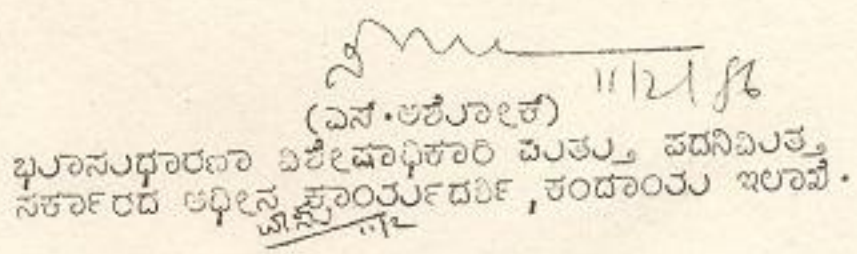 11/2/86
(ಎಸ್.ಅಶೋಕ್)
ಭೂಸುಧಾರಣಾ ವಿಶೇಷಾಧಿಕಾರಿ ಮತ್ತು ಪದನಿಮಿತ್ತ
ಸರ್ಕಾರದ ಅಧೀನ ಕಾರ್ಯದರ್ಶಿ, ಕಂದಾಯ ಇಲಾಖೆ.
11/2